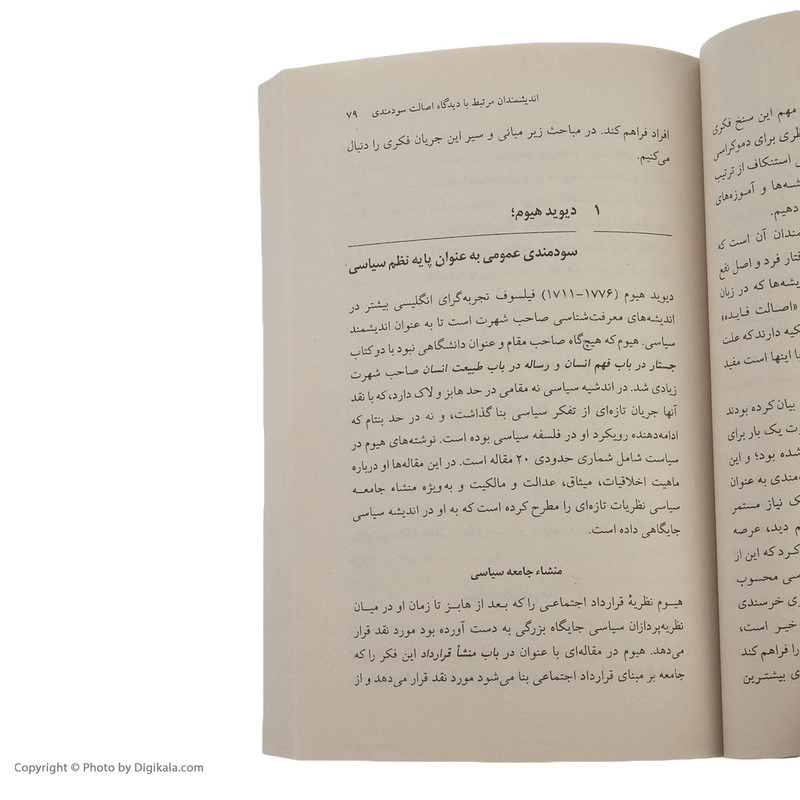 اندیشمندان مرتبط با دیدگاه اصالت سودمندی ۷۹
افراد فراهم کند. در مباحث زیر مبانی و سیر این جریان فکری را دنبال
می‌کنیم.
۱ دیوید هیوم؛
سودمندی عمومی به عنوان پایه نظم سیاسی
دیوید هیوم (۱۷۷۶-۱۷۱۱) فیلسوف تجربه‌گرای انگلیسی بیشتر در
اندیشه‌های معرفت‌شناسی صاحب شهرت است تا به عنوان اندیشمند
سیاسی. هیوم که هیچ‌گاه صاحب مقام و عنوان دانشگاهی نبود با دو کتاب
جستار در باب فهم انسان و رساله در باب طبیعت انسان صاحب شهرت
زیادی شد. در اندشیه سیاسی نه مقامی در حد هابز و لاک دارد،که با نقد
آنها جریان تازه‌ای از تفکر سیاسی بنا گذاشت، و نه در حد بنتام که
ادامه‌دهنده رویکرد او در فلسفه سیاسی بوده است. نوشته‌های هیوم در
سیاست شامل شماری حدودی ۲۰ مقاله است. در این مقاله‌ها او درباره
ماهیت اخلاقیات، میثاق، عدالت و مالکیت و به‌ویژه منشاء جامعه
سیاسی نظریات تازه‌ای را مطرح کرده است که به او در اندیشه سیاسی
جایگاهی داده است.
منشاء جامعه سیاسی
هیوم نظریهٔ قرارداد اجتماعی را که بعد از هابز تا زمان او در میان
نظریه‌پردازان سیاسی جایگاه بزرگی به دست آورده بود مورد نقد قرار
می‌دهد. هیوم در مقاله‌ای با عنوان در باب منشأ قرارداد این فکر را که
جامعه بر مبنای قرارداد اجتماعی بنا می‌شود مورد نقد قرار می‌دهد و از
مهم این سنخ فکری
نظری برای دموکراسی
استنکاف از ترتیب
و آموزه‌های
دهیم.
آن است که
فرد و اصل نفع
که در زبان
«اصالت فایده»
تکیه دارند که علت
اینها است مفید
بیان کرده بودند
یک بار برای
شده بود؛ و این
به عنوان
نیاز مستمر
دید، عرصه
کرد که این از
محسوب
خرسندی
خیر است،
را فراهم کند
بیشترین
Copyright © Photo by Digikala.com